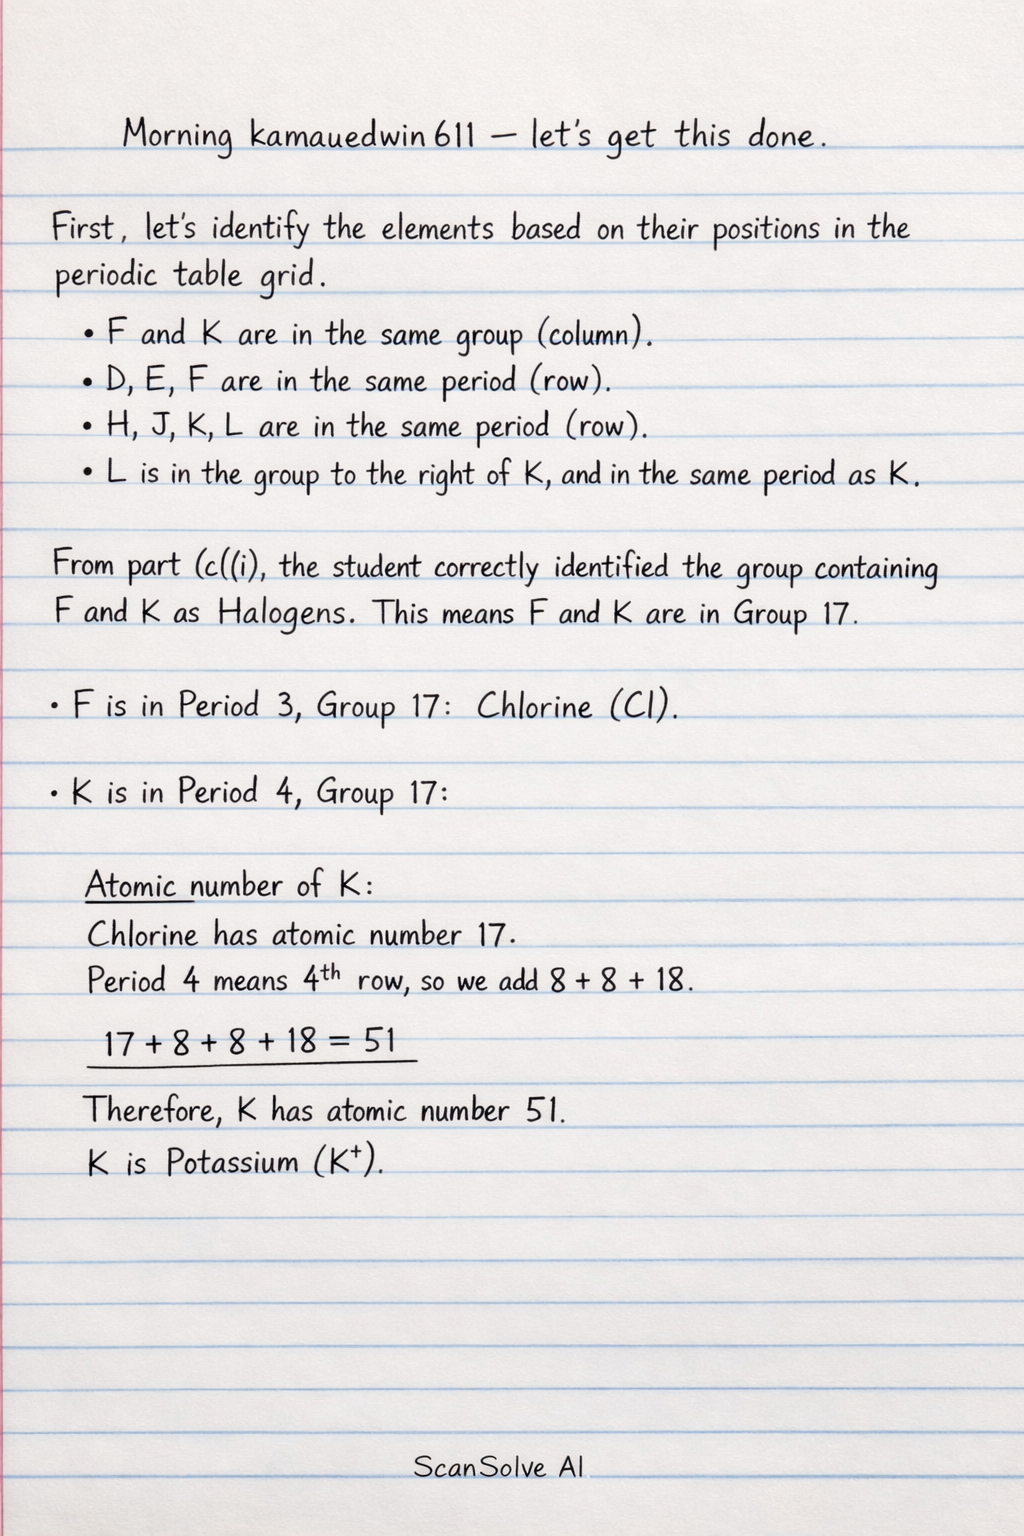 Morning kamauedwin611 — let's get this done.
First, let's identify the elements based on their positions in the
periodic table grid.
• F and K are in the same group (column).
• D, E, F are in the same period (row).
• H, J, K, L are in the same period (row).
• L is in the group to the right of K, and in the same period as K.
From part (c((i), the student correctly identified the group containing
F and K as Halogens. This means F and K are in Group 17.
• F is in Period 3, Group 17: Chlorine (Cl).
• K is in Period 4, Group 17:
Atomic number of K:
Chlorine has atomic number 17.
Period 4 means 4th row, so we add 8 + 8 + 18.
17 + 8 + 8 + 18 = 51
Therefore, K has atomic number 51.
K is Potassium (K⁺).
ScanSolve AI